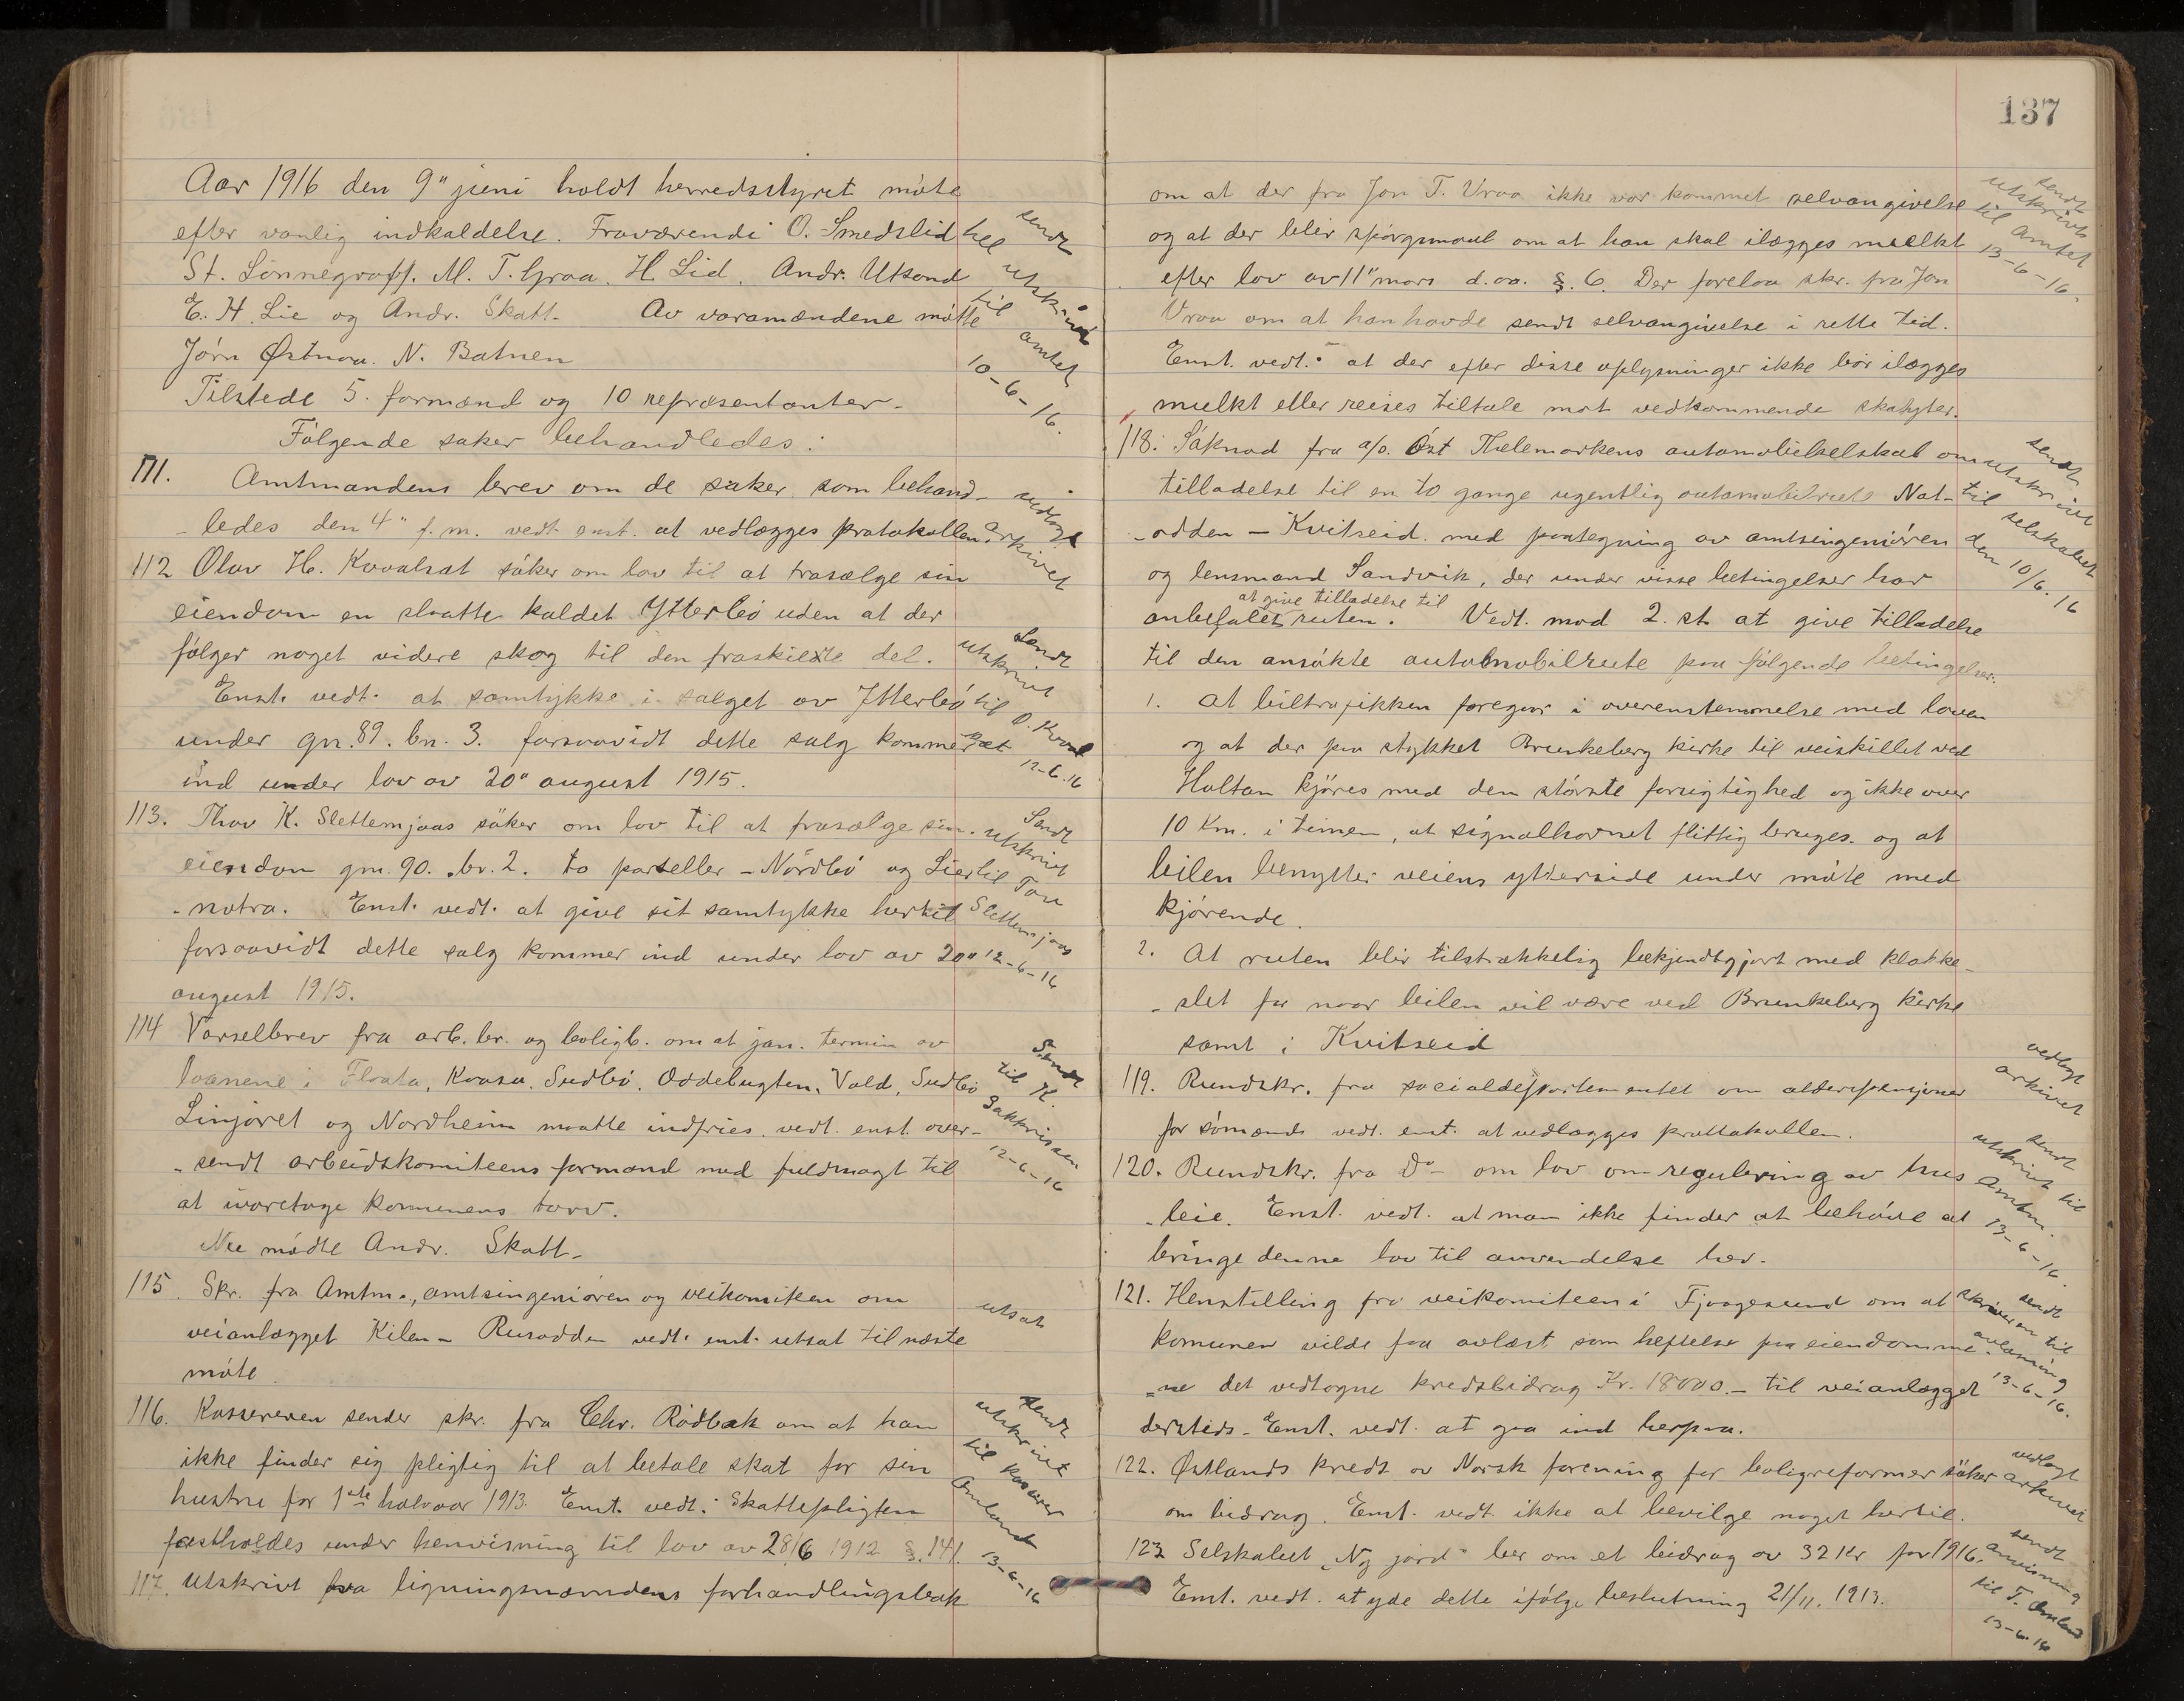 Aar 1916 den 9" juni holdt herredsstyret møte
efter vanlig indkaldelse. Fraværende O. Smedslid
St. Lönnegraff. M. T. Graa. H. Lid. Andr. Utsond
E. H. Lie og Andr. Skatt. Av varamændene møtte
Jörn Østnaa. N. Batnen
Tilstede 5. formænd og 10 repræsentanter.
Følgende saker behandledes:
sendt
hel utskrivt
til amtet
10-6-16.
111. Amtmandens brev om de saker som behand-
-ledes den 4" f.m. vedt. enst. at vedlægges protokollen.
vedlagt
arkivet
112 Olav H. Kvaalsat söker om lov til at frasælge sin
eiendom en slaatte kaldet Ytterbö uden at der
fölger noget videre skog til den fraskilte del.
Enst. vedt. at samtykke i salget av Ytterbö
under gn. 89. bn. 3. forsaavidt dette salg kommer
ind under lov av 20" august 1915.
Sendt
utskrivt
til O. Kvaal
sat
12-6.16
113. Thov K. Slettemjaas söker om lov til at frasælge sin
eiendom gn. 90. br. 2. to parseller - Nördbö og Lier
-notra. Enst. vedt. at give sit samtykke hertil
forsaavidt dette salg kommer ind under lov av 20"
august 1915.
Sendt
utskrivt
til Tov
Slettemjaas
12-6-16
114 Varselbrev fra arb. br. og boligb. om at jan. termin av
laanene i Flaata, Kvasa, Sudbö, Oddebugten, Vald, Sudbö
Linjöret og Nordheim maatte indfries. vedt. enst. over-
-sendt arbeidskomiteens formand med fuldmagt til
at ivaretage kommunens tarv.
Nu mødte Andr. Skatt.
Sendt
til K.
Sakkrissen
12-6-16
115. Skr. fra Amtm., amtsingeniören og veikomiteen om
veianlægget Kilen - Rusodden vedt. enst. utsat til næste
möte
utsat
116. Kassereren sender skr. fra Chr. Rödbæk om at han
ikke finder sig pligtig til at betale skat for sin
hustru for 1ste halvaar 1913. Enst. vedt.: Skattepligten
fastholdes under henvisning til lov av 28/6 1912 §. 141
sendt
utskrivt
til kasserer
Omland
13-6-16
117. Utskrivt fra ligningsnæmdens forhandlingsbok
137
om at der fra Jon T. Vraa ikke var kommet selvangivelse
og at der blir spörgsmaal om at han skal ilægges muelkt
efter lov av 11" mars d.aa. §. 6. Der forelaa skr. fra Jon
Vraa om at han havde sendt selvangivelse i rette tid.
Enst. vedt.: at der efter disse oplysninger ikke bör ilægges
mulkt eller reises tiltale mot vedkommende skatyter.
sendt
utskrivt
til Amtet
13-6-16.
118. Söknad fra a/s. Öst Thelemarkens automobilselskab om
tilladelse til en to gange ugentlig automobilrute Not-
-odden - Kvitseid. med paategning av amtsingeniören
og lensmand Sandvik, der under visse betingelser har
anbefalet at give tilladelse til ruten. Vedt. mod 2. st. at give tilladelse
til den ansökte automobilrute paa fölgende betingelser.
sendt
utskrivt
til selskabet
den 10/6.16
1. At biltrafikken foregaar i overenstemmelse med loven
og at der paa stykket Brunkeberg kirke til veiskillet ved
Holtan kjöres med den störste forsigtighed og ikke over
10 Km. i timen, at signalhornet flittig bruges. og at
bilen benytter veiens ytterside under möte med
kjörende.
2. At ruten blir tilstrækkelig bekjendtgjort med klokke-
-slet for naar bilen vil være ved Brunkeberg kirke
samt i Kvitseid
119. Rundskr. fra socialdepartementet om alderspensjoner
for sömænd vedt. enst. at vedlægges prottokollen.
vedlagt
arkivet
120. Rundskr. fra Do- om lov om regulering av hus
-leie. Enst. vedt. at man ikke finder at behöve at
bringe denne lov til anvendelse her.
sendt
utskrivt til
Amtm.
13-6-16.
121. Henstilling fra veikomiteen i Fjaagesund om at
komunen vilde faa avlæst som heftelse paa eiendomme
-ne det vedtagne kredsbidrag Kr. 18000.- til veianlægget
dersteds. Enst. vedt. at gaa ind herpaa.
sendt
skriveren til
avlæsning
13-6-16.
122. Østlands kreds av Norsk forening for boligreformer söker
om bidrag. Enst. vedt. ikke at bevilge noget hertil.
vedlagt
arkivet
123 Selskabet „Ny jord" ber om et bidrag av 32 Kr for 1916.
Enst. vedt. at yde dette ifölge beslutning 21/11. 1913.
sendt
anvisning
til T. Omland
13-6-16